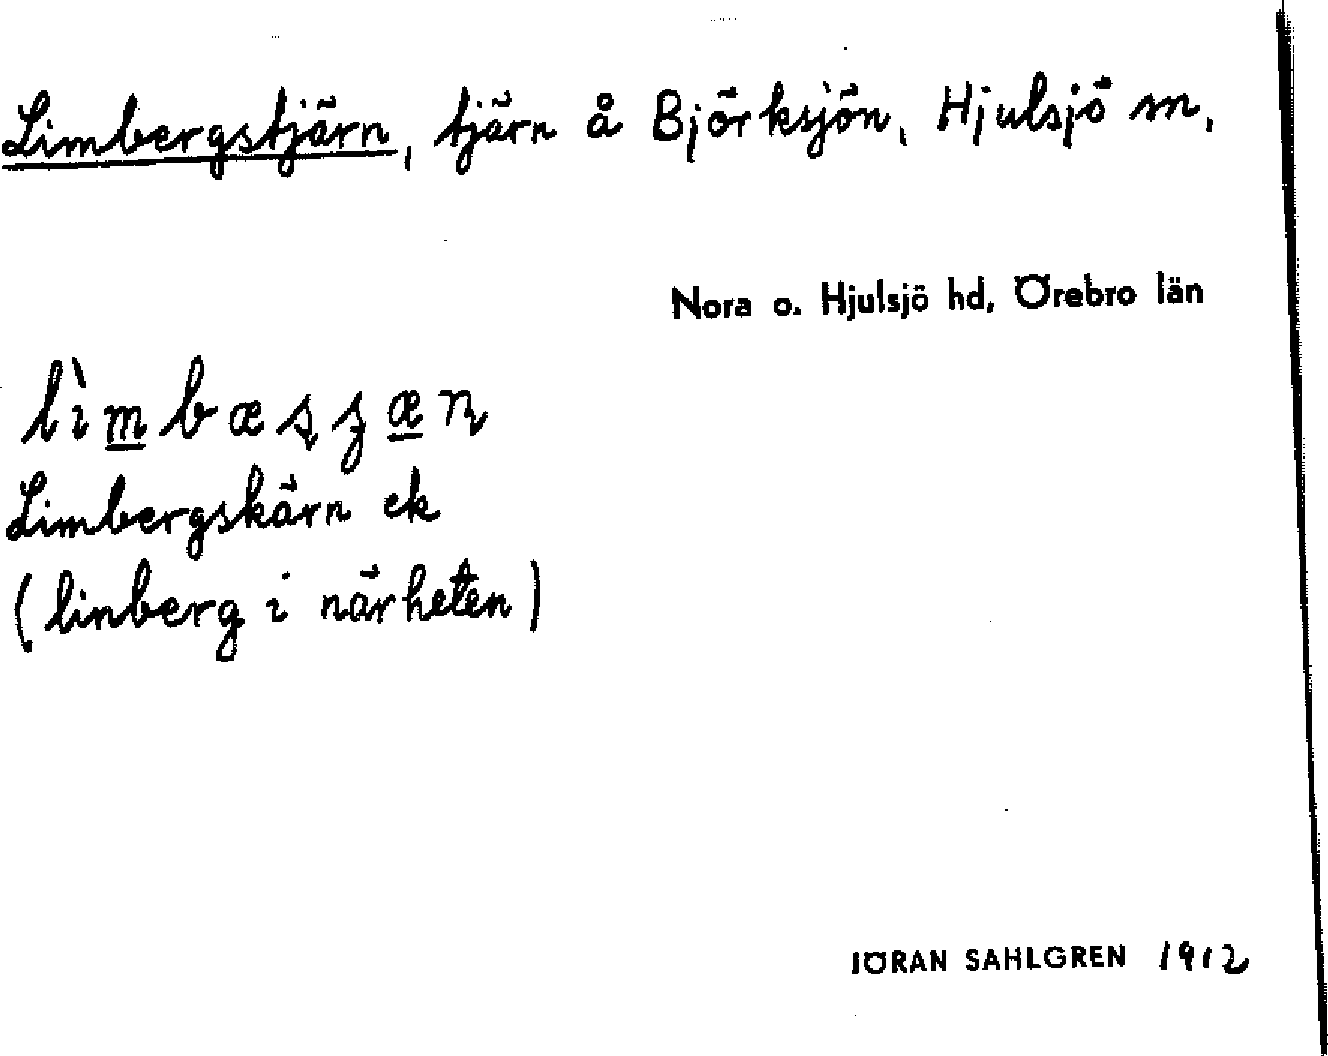 Limbergstjärn, tjärn å Björksjön, Hjulsjö sn,
Nora o. Hjulsjö hd, Örebro län
Limbergskärn ek
(linberg i närheten)
JÖRAN SAHLGREN 1912